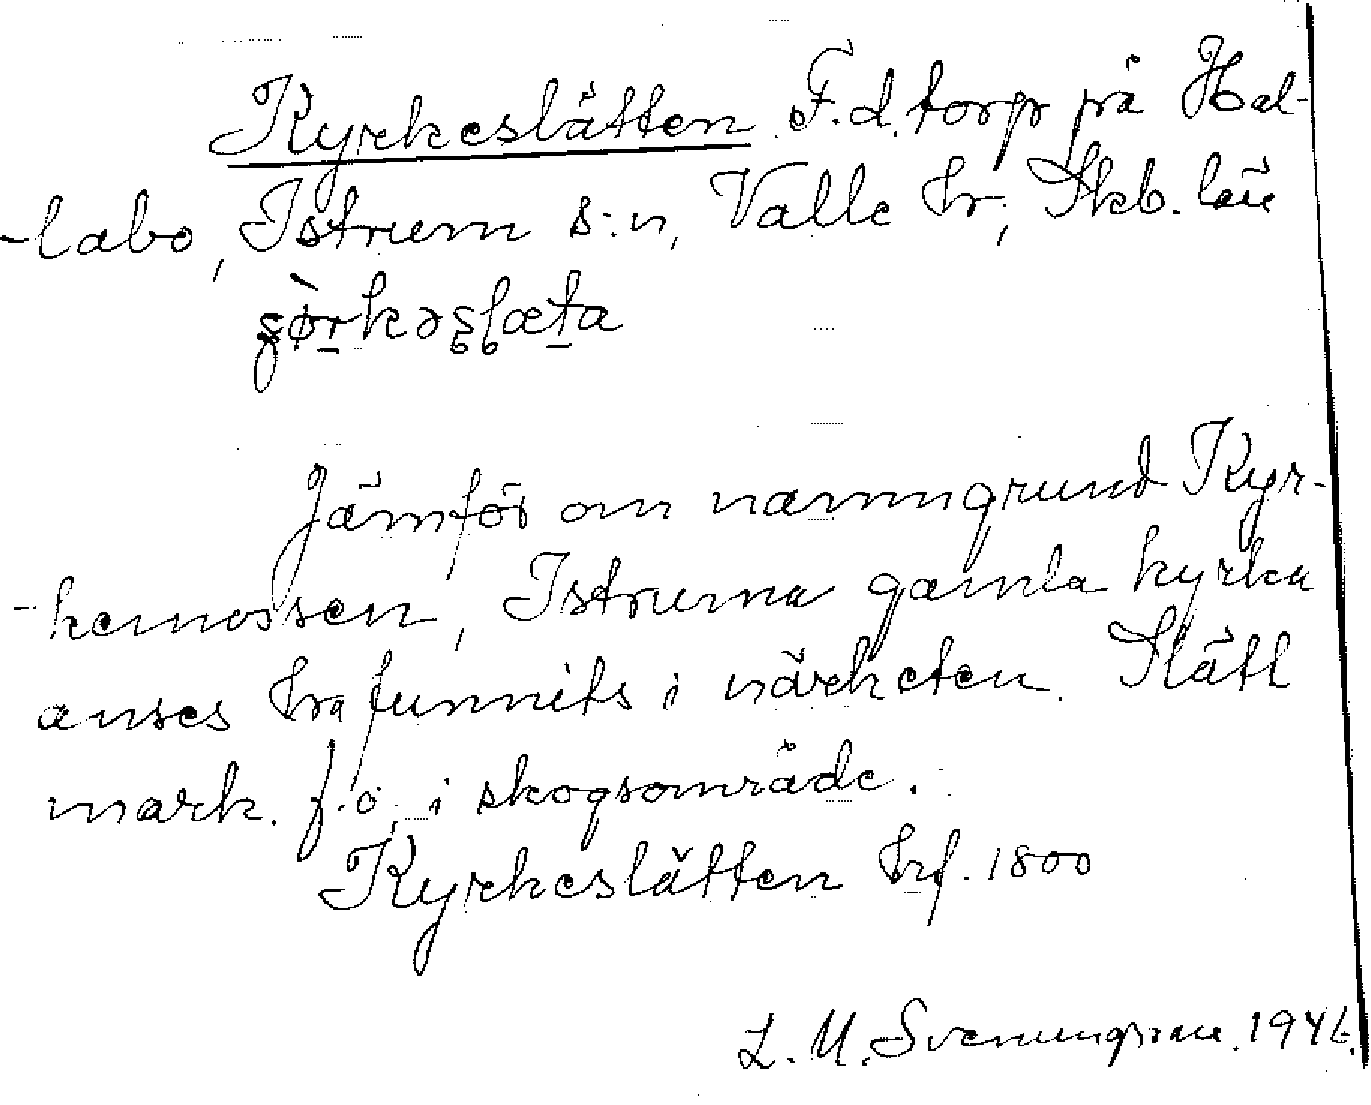 Kyrkeslätten. F.d. torp på Hal-
-labo, Istrum s:n, Valle hr, Skb. län

Jämför om namngrund Kyr-
-kemossen, Istrums gamla kyrka
anses ha funnits i närheten. Slätt
mark. f.ö. i skogsområde.
Kyrkeslätten hrf. 1800
L. M. Svenungsson. 1946.